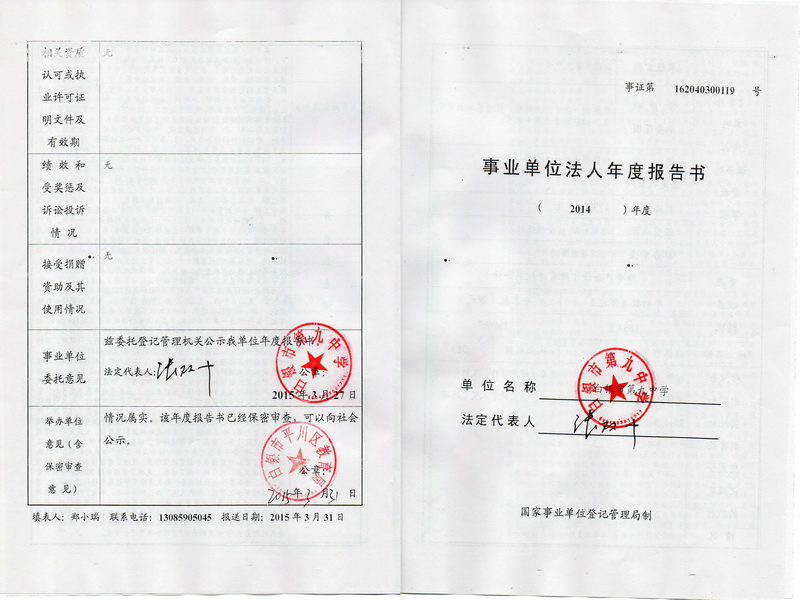 相关资质
认可或执
业许可证
明文件及
有效期
无
绩效和
受奖惩及
诉讼投诉
情况
无
接受捐赠
资助及其
使用情况
无
事业单位
委托意见
兹委托登记管理机关公示我单位年度报告书.
法定代表人:
公章:
2015年3月27日
白银市第九中学
举办单位
意见(含
保密审查
意见)
情况属实。该年度报告书已经保密审查,可以向社会
公示。
白银市平川区教育局
公章:
2015年3月31日
填表人:郑小瑞 联系电话:13085905045 报送日期:2015年3月31日
事证第 162040300119 号
事业单位法人年度报告书
( 2014 )年度
单位名称 白银市第九中学
白银市第九中学
法定代表人
国家事业单位登记管理局制